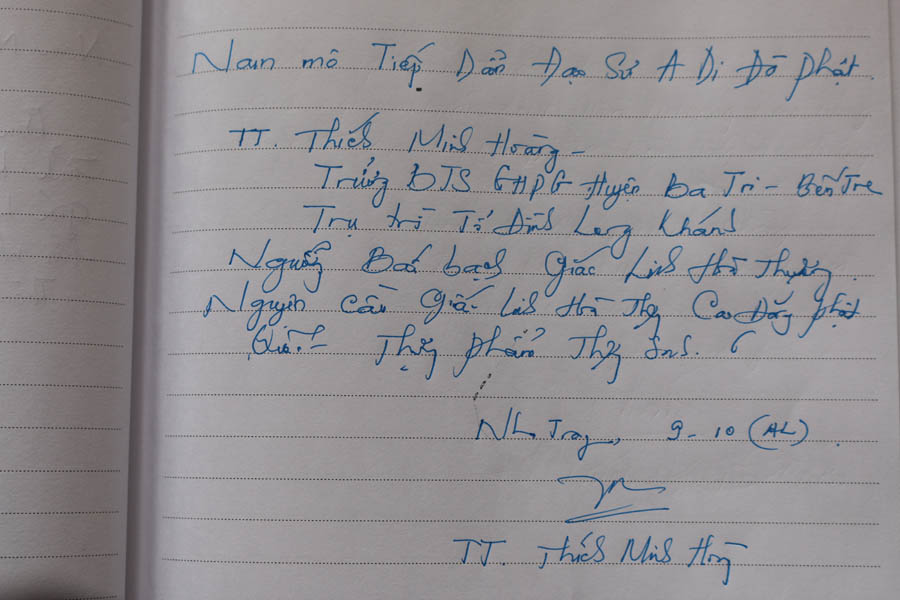 Nam mô Tiếp Dẫn Đạo Sư A Di Đà Phật.
TT. Thích Minh Hoàng -
Trưởng BTS GHPG Huyện Ba Tri - Bến Tre
Trụ trì Tổ Đình Long Khánh
Ngưỡng Bái bạch Giác Linh Hòa Thượng.
Nguyện cầu Giác Linh Hòa Thượng Cao Đăng Phật
Quốc - Thượng Phẩm Thượng Sanh.
Nha Trang, 9-10 (AL).
TT. Thích Minh Hoàng